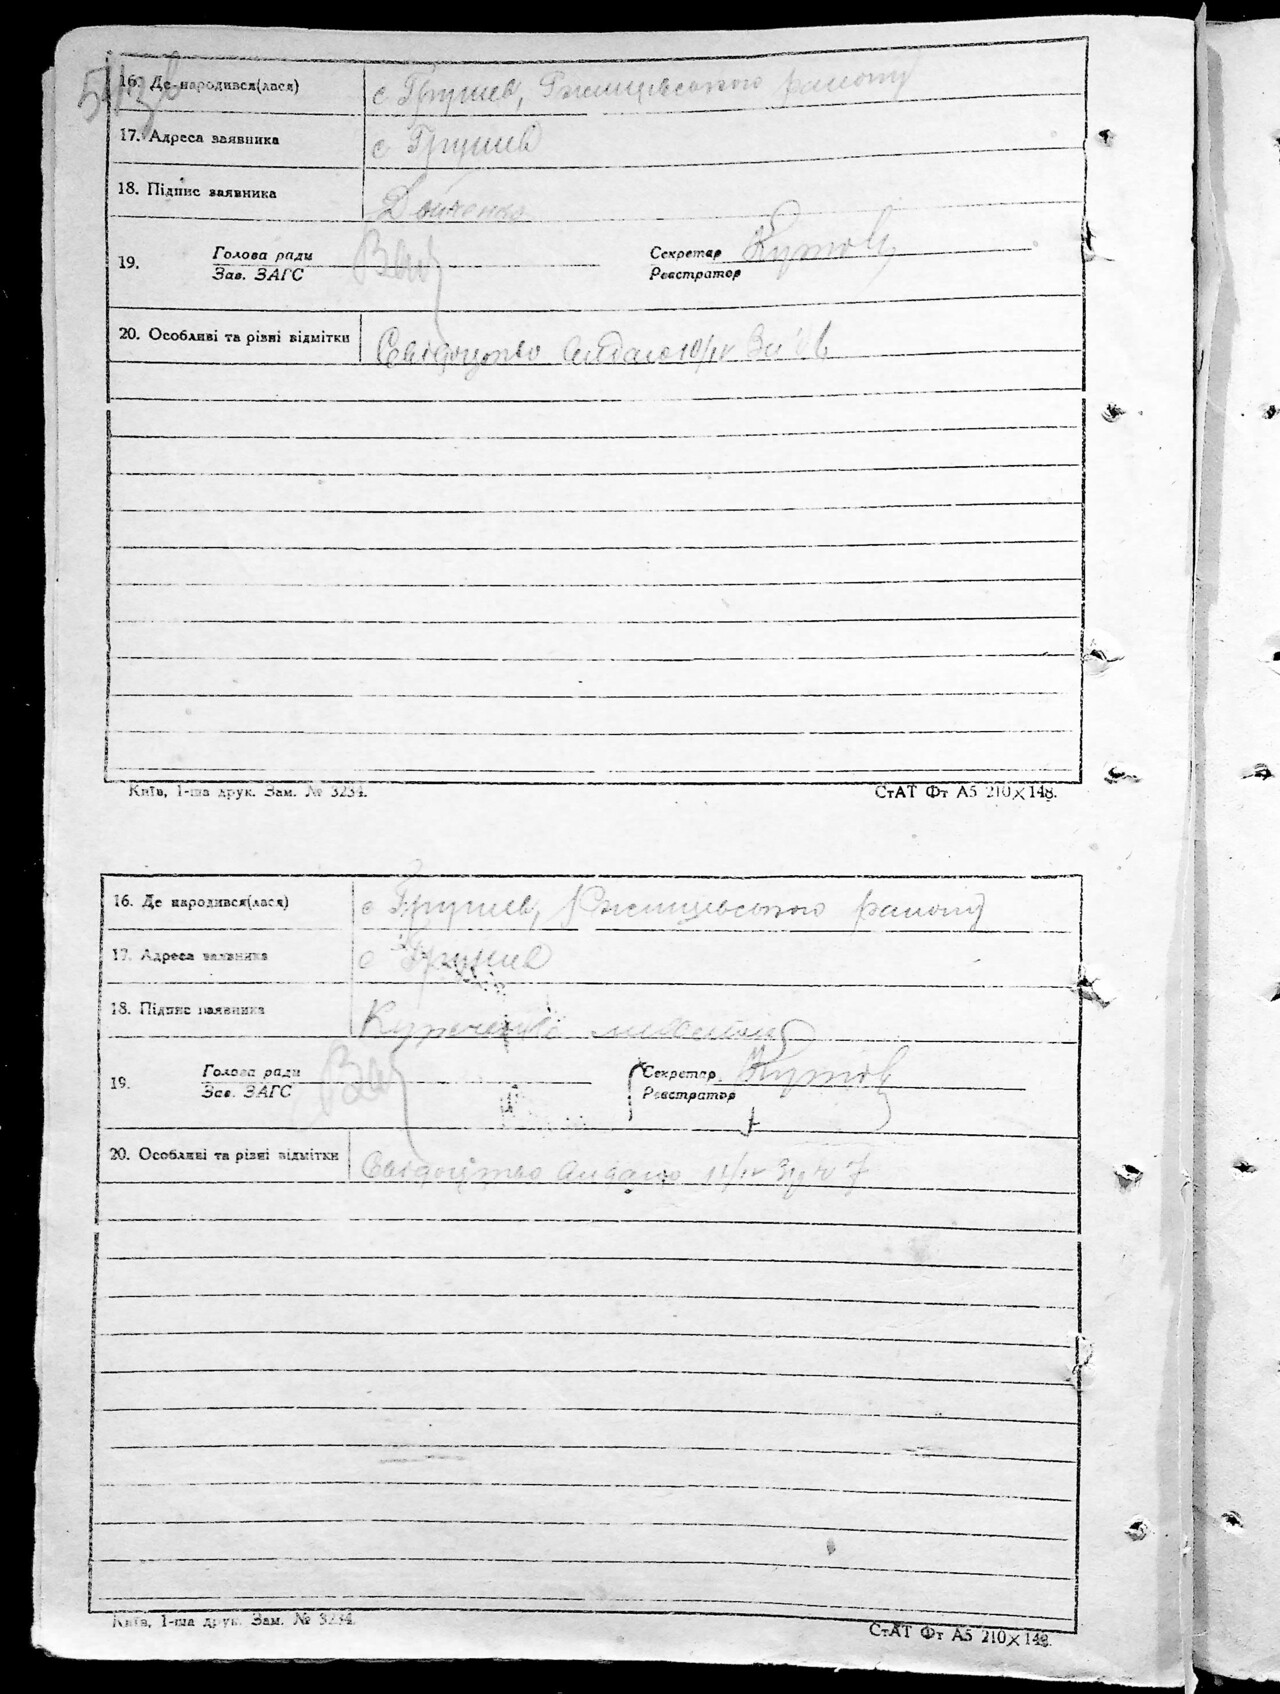 16. Де народився(лася) с Грушев, Ржищевського району
17. Адреса заявника с Грушев
18. Підпис заявника
19. Голова ради Секретар
Зав. ЗАГС Реєстратор
20. Особливі та різні відмітки Свідоцтво видано 10/IV
Київ, 1-ша друк. Зам. № 3234. СтАТ Фт А5 210×148.
16. Де народився(лася) с Грушев, Ржищевського району
17. Адреса заявника с Грушев
18. Підпис заявника
19. Голова ради Секретар
Зав. ЗАГС Реєстратор
20. Особливі та різні відмітки Свідоцтво видано 11/IV
Київ, 1-ша друк. Зам. № 3234. СтАТ Фт А5 210×148.